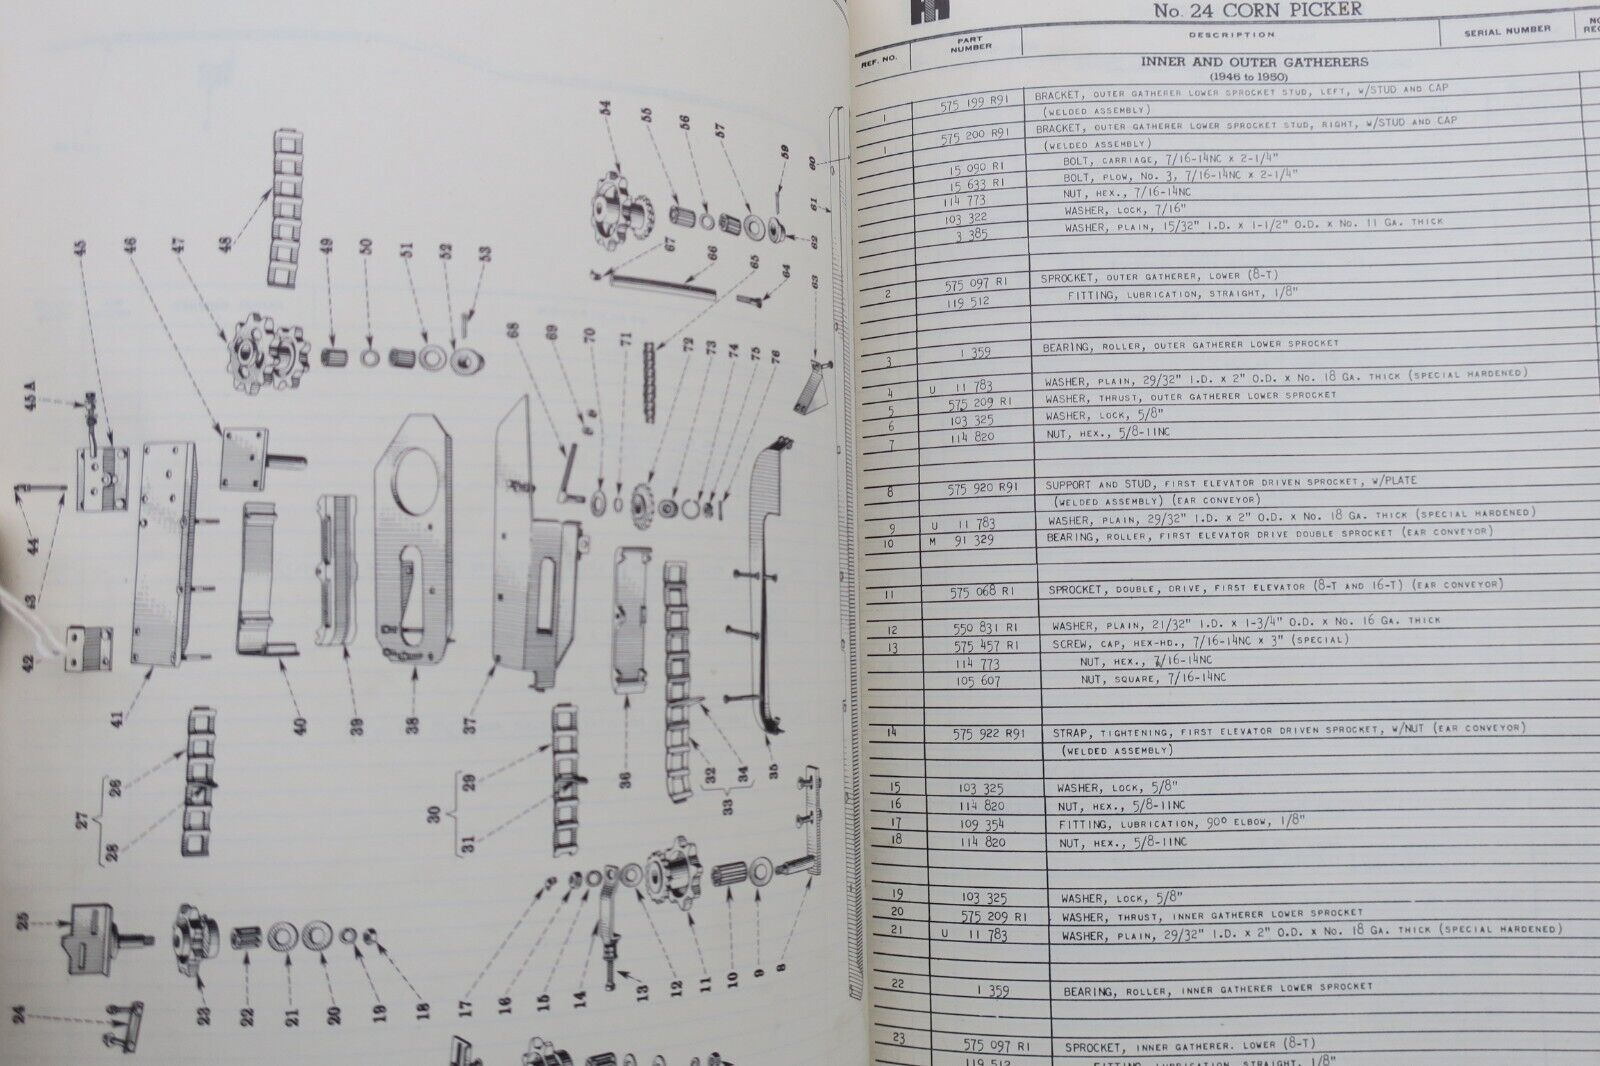 54
55
56
57
59
60
61
62
63
64
65
66
67
45
46
47
48
49
50
51
52
53
45A
44
43
42
41
40
39
38
37
36
35
34
33
32
68
69
70
71
72
73
74
75
76
27
26
28
30
29
31
25
24
23
22
21
20
19
18
17
16
15
14
13
12
11
10
9
8
No. 24 CORN PICKER
REF. NO.
PART
NUMBER
DESCRIPTION
SERIAL NUMBER
INNER AND OUTER GATHERERS
(1946 to 1950)
1 575 199 R91 BRACKET, OUTER GATHERER LOWER SPROCKET STUD, LEFT, W/STUD AND CAP
(WELDED ASSEMBLY)
1 575 200 R91 BRACKET, OUTER GATHERER LOWER SPROCKET STUD, RIGHT, W/STUD AND CAP
(WELDED ASSEMBLY)
15 090 R1 BOLT, CARRIAGE, 7/16-14NC x 2-1/4"
15 633 R1 BOLT, PLOW, No. 3, 7/16-14NC x 2-1/4"
114 773 NUT, HEX., 7/16-14NC
103 322 WASHER, LOCK, 7/16"
3 385 WASHER, PLAIN, 15/32" I.D. x 1-1/2" O.D. x No. 11 GA. THICK
2 575 097 R1 SPROCKET, OUTER GATHERER, LOWER (8-T)
119 512 FITTING, LUBRICATION, STRAIGHT, 1/8"
3 1 359 BEARING, ROLLER, OUTER GATHERER LOWER SPROCKET
4 U 11 783 WASHER, PLAIN, 29/32" I.D. x 2" O.D. x No. 18 GA. THICK (SPECIAL HARDENED)
5 575 209 R1 WASHER, THRUST, OUTER GATHERER LOWER SPROCKET
6 103 325 WASHER, LOCK, 5/8"
7 114 820 NUT, HEX., 5/8-11NC
8 575 920 R91 SUPPORT AND STUD, FIRST ELEVATOR DRIVEN SPROCKET, W/PLATE
(WELDED ASSEMBLY) (EAR CONVEYOR)
9 U 11 783 WASHER, PLAIN, 29/32" I.D. x 2" O.D. x No. 18 GA. THICK (SPECIAL HARDENED)
10 M 91 329 BEARING, ROLLER, FIRST ELEVATOR DRIVE DOUBLE SPROCKET (EAR CONVEYOR)
11 575 068 R1 SPROCKET, DOUBLE, DRIVE, FIRST ELEVATOR (8-T AND 16-T) (EAR CONVEYOR)
12 550 831 R1 WASHER, PLAIN, 21/32" I.D. x 1-3/4" O.D. x No. 16 GA. THICK
13 575 457 R1 SCREW, CAP, HEX-HD., 7/16-14NC x 3" (SPECIAL)
114 773 NUT, HEX., 7/16-14NC
105 607 NUT, SQUARE, 7/16-14NC
14 575 922 R91 STRAP, TIGHTENING, FIRST ELEVATOR DRIVEN SPROCKET, W/NUT (EAR CONVEYOR)
(WELDED ASSEMBLY)
15 103 325 WASHER, LOCK, 5/8"
16 114 820 NUT, HEX., 5/8-11NC
17 109 354 FITTING, LUBRICATION, 90° ELBOW, 1/8"
18 114 820 NUT, HEX., 5/8-11NC
19 103 325 WASHER, LOCK, 5/8"
20 575 209 R1 WASHER, THRUST, INNER GATHERER LOWER SPROCKET
21 U 11 783 WASHER, PLAIN, 29/32" I.D. x 2" O.D. x No. 18 GA. THICK (SPECIAL HARDENED)
22 1 359 BEARING, ROLLER, INNER GATHERER LOWER SPROCKET
23 575 097 R1 SPROCKET, INNER GATHERER. LOWER (8-T)
119 512 FITTING, LUBRICATION, STRAIGHT, 1/8"